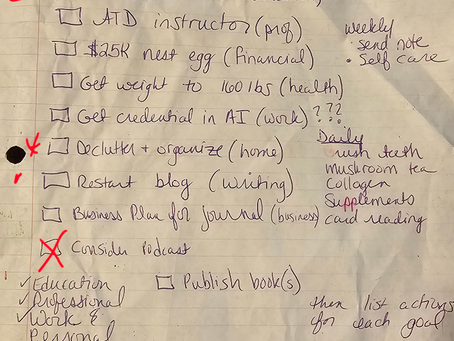 ATD instructor (prof)
$25K nest egg (financial)
Get weight to 160 lbs (health)
Get credential in AI (work) ???
Declutter + organize (home)
Restart blog (writing)
Business Plan for journal (business)
Consider Podcast
Publish book(s)
weekly
• Send note
• Self care
Daily
brush teeth
mushroom tea
Collagen
Supplements
card reading
✓ Education
✓ Professional
✓ Work &
Personal
then list actions
for each goal